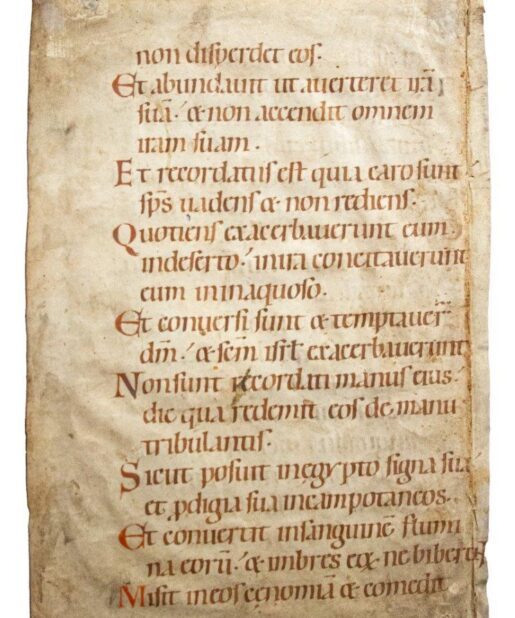 non disperdet eos.
Et abundavit ut averteret irã
suã. & non accendit omnem
iram suam.
Et recordatus est quia caro sunt
sp̃s vadens & non rediens.
Quotiens exacerbaverunt eum
indeserto. inira concitaverunt
eum ininaquoso.
Et conversi sunt & temptaver̃
dm̃. & sc̃m isrl̃ exacerbaverunt
Nonsunt recordati manus eius.
die qua redemit eos demanu
tribulantis.
Sicut posuit inegypto signa sua
et pdigia sua incampotaneos.
Et convertit insanguinẽ flumi
na eorũ. & imbres eox. ne biberent
Misit ineos cẽnomiã & comedit